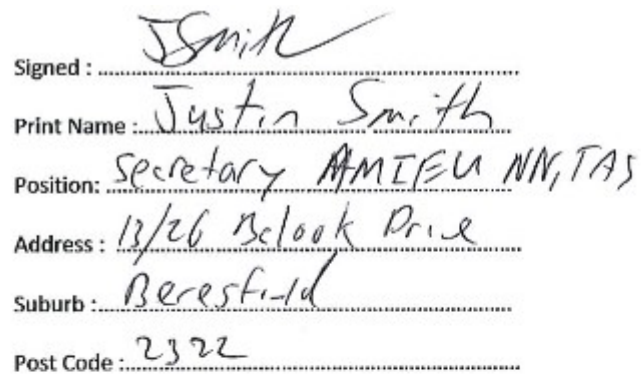 Signed : JSmith
Print Name : Justin Smith
Position: Secretary AMIEU NN,TAS
Address : 13/26 Balook Drive
Suburb : Beresfield
Post Code : 2322